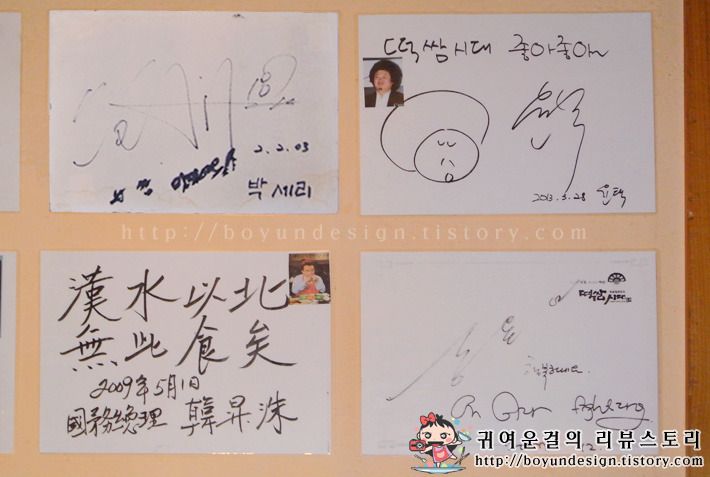 2. 2. 03
박세리
떡쌈시대 좋아좋아~
2013. 3. 28 윤택
http://boyundesign.tistory.com
漢水以北
無此食矣
2009年5月1日
國務總理 韓昇洙
떡쌈시대
행복하세요
귀여운걸의 리뷰스토리
http://boyundesign.tistory.com